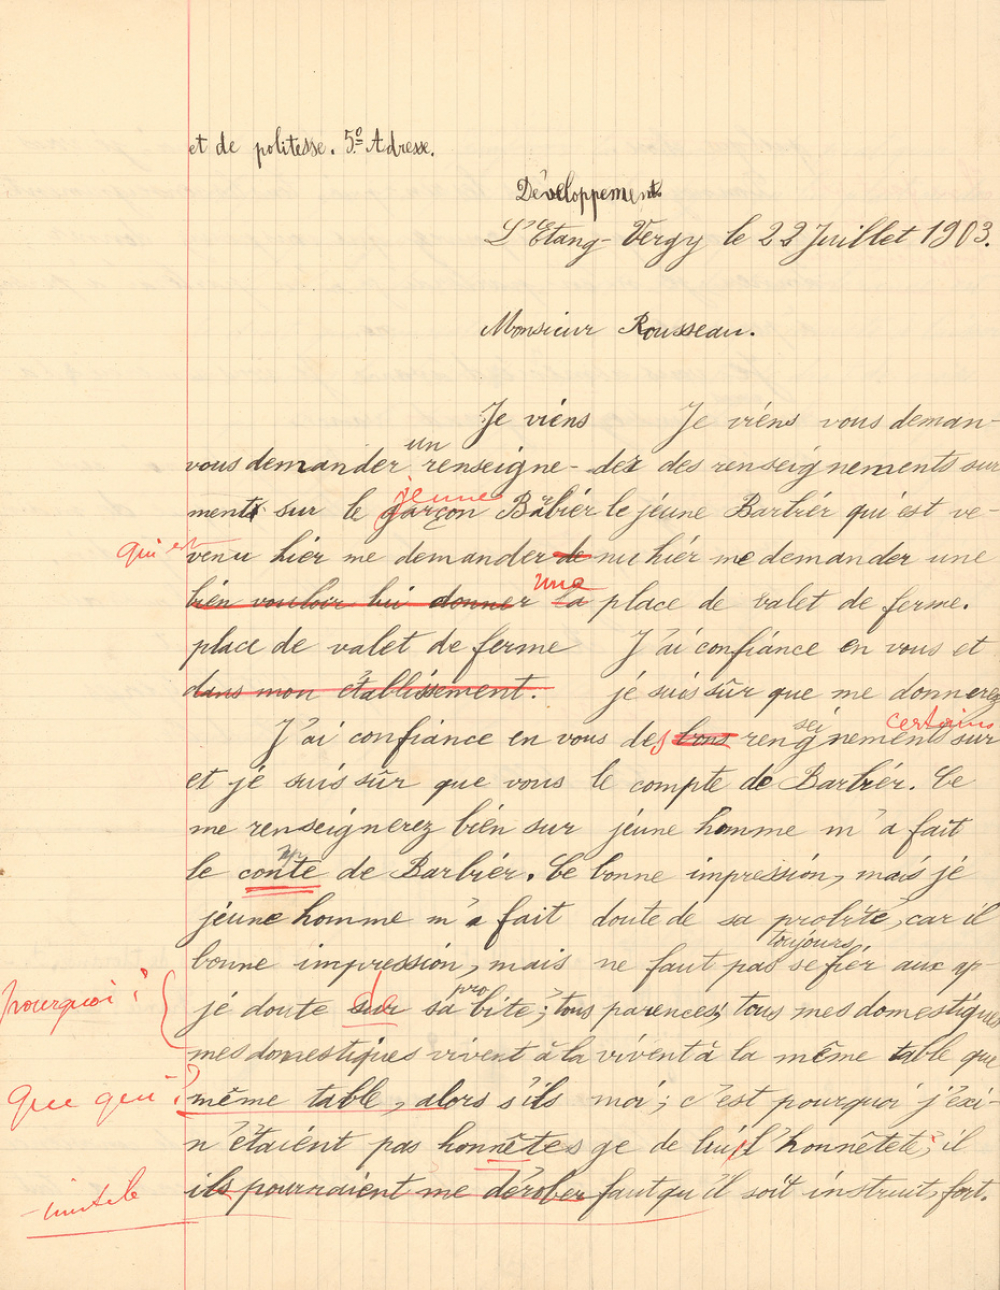 et de politesse. 5º Adresse.
Développement.
L'Etang-Vergy le 22 Juillet 1903.
Monsieur Rousseau.
Je viens Je viéns vous deman-
un
vous demander renseigne- der des renseignements sur
jeune
ments sur le garçon Barbiér le jéune Barbiér qui ést ve-
qui est
venu hiér me demander de nu hiér me demander une
une
bién vouloir lui donner la place de valet de ferme.
place de valet de ferme J'ai confiance en vous et
dans mon établissement. je suis sûr que me donnerez
sei certains
J'ai confiance en vous des bons rengnements sur
et je suis sûr que vous le compte de Barbiér. Ce
me renseignerez bién sur jéune homme m'a fait
mp
le conte de Barbiér. Ce bonne impression, mais jé
jéune homme m'a fait doute de sa probité, car il
toujours
bonne impression, mais ne faut pas se fiér aux ap-
pourquoi?
de pro
jé doute sur sa bité; tous parences; tous mes doméstiques
mes doméstiques vivent à la vivent à la même table que
Que qui?
même table, alors s'ils moi; c'est pourquoi j'exi-
n'étaiént pas honnêtes ge de lui l'honnêteté; il
inutile
ils pourraient me dérober faut qu'il soit instruit, fort.